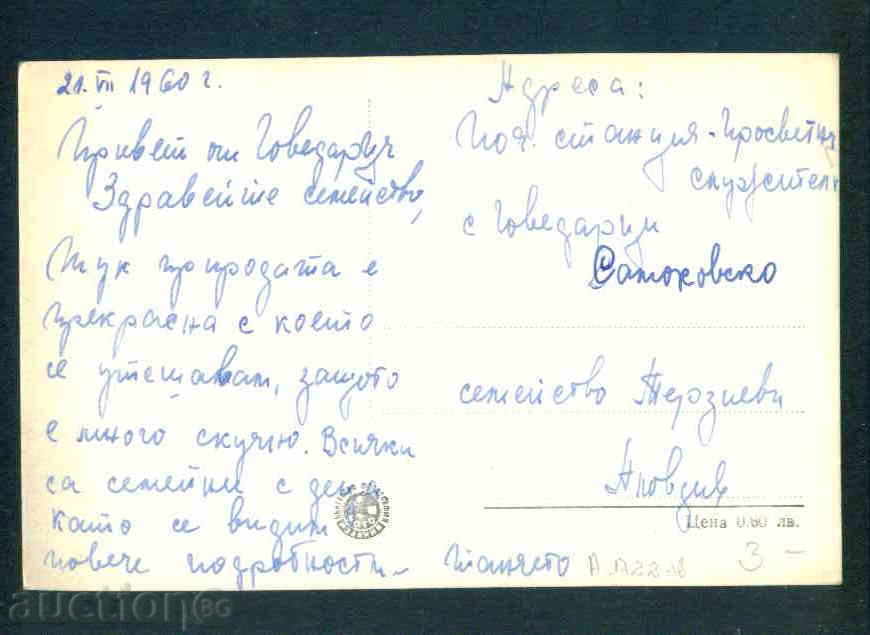 21. VII 1960 г.
Привет от Говедарци
Здравейте семейство,
Тук природата е
прекрасна с което
се утешавам, защото
е много скучно. Всички
са семейни с деца
като се видим
повече подробности – Танчето
Адреса:
Поч. станция - Просветни
служители
с Говедарци
Самоковско
семейство Терзиеви
Пловдив
Цена 0.60 лв.
3 –
auctionBG